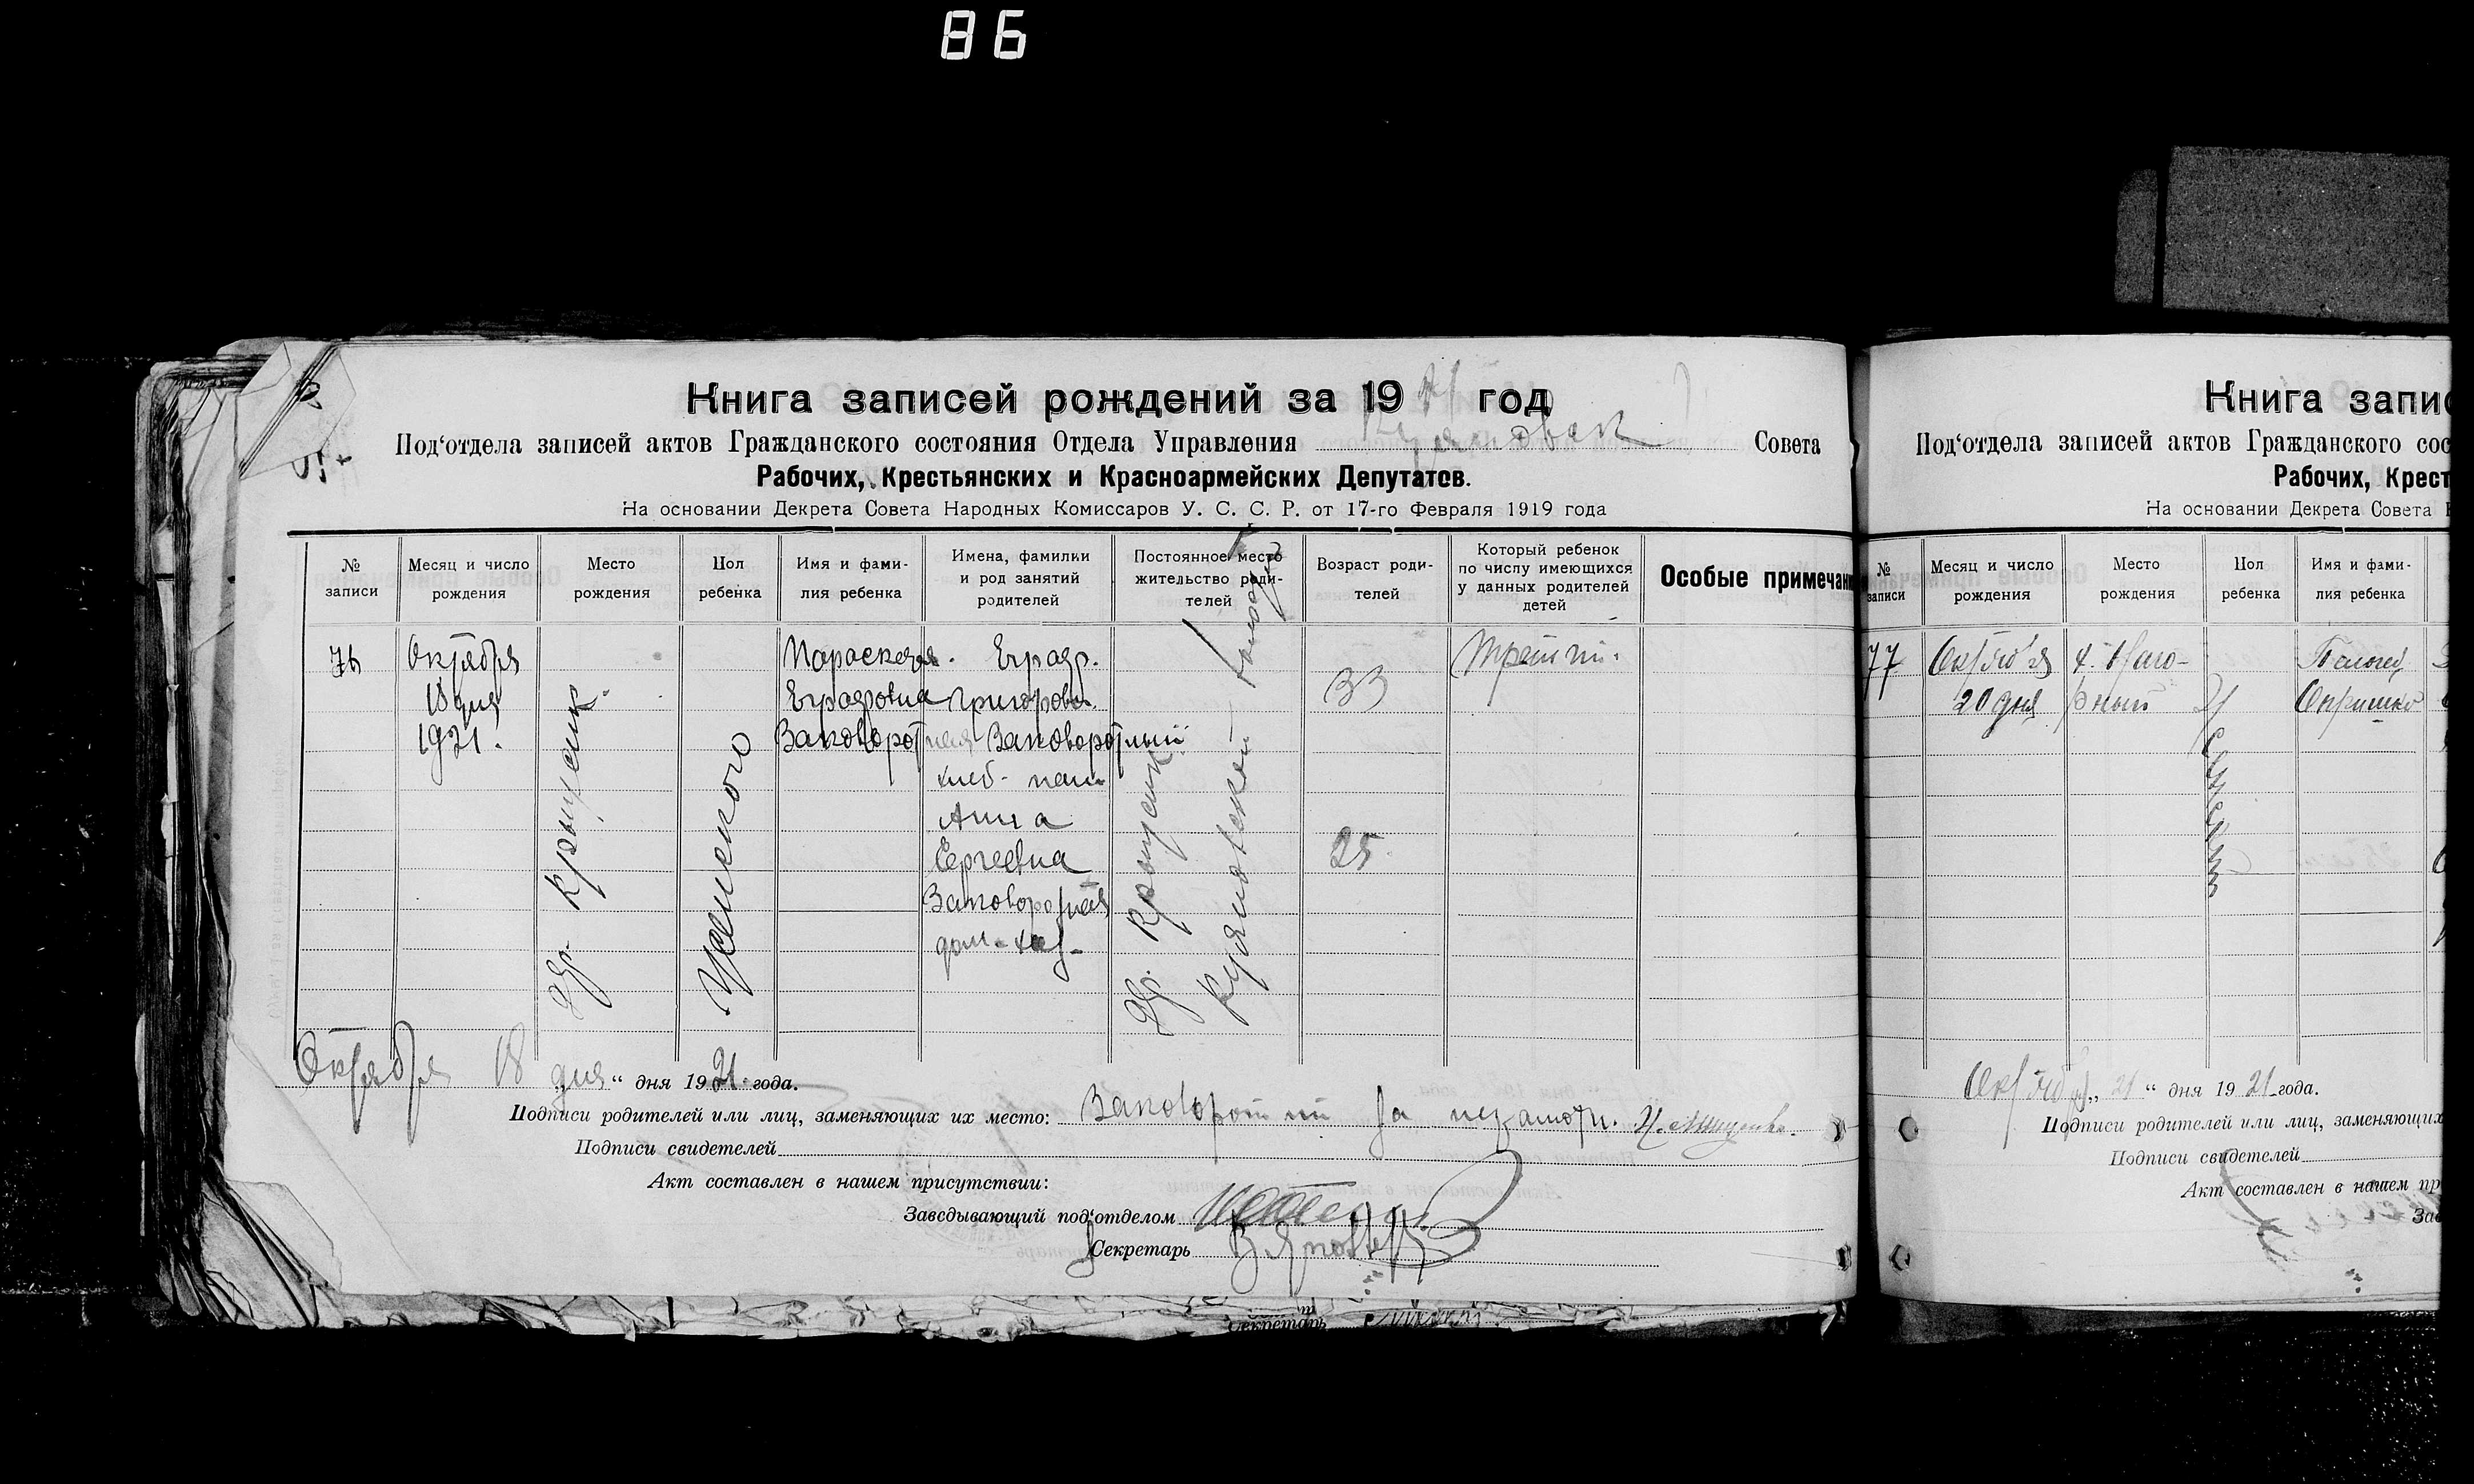 86
Книга записей рождений за 1921 год
Под‘отдела записей актов Гражданского состояния Отдела Управления Совета
Рабочих, Крестьянских и Красноармейских Депутатов.
На основании Декрета Совета Народных Комиссаров У. С. С. Р. от 17-го Февраля 1919 года
№ записи
Месяц и число рождения
Место рождения
Пол ребенка
Имя и фами-
лия ребенка
Имена, фамилии
и род занятий
родителей
Постоянное место
жительство роди-
телей
Возраст роди-
телей
Который ребенок
по числу имеющихся
у данных родителей
детей
Особые примечан
76
Октября
18 дня
1921.
дер.
Женского
Параскева
Заковоротная
Григоров.
Заковоротный
хлеб- паш
Анна
Сергеевна
Заковоротная
дом-хоз-
дер.
33
25
Третий.
Октября 18 дня “ дня 1921 года.
Подписи родителей или лиц, заменяющих их место: Заковоротний за неграмотн.
Подписи свидетелей
Акт составлен в нашем присутствии:
Заведывающий под‘отделом
Секретарь
Секретарь
Книга запис
Под‘отдела записей актов Гражданского сос
Рабочих, Крест
На основании Декрета Совета Н
№ записи
Месяц и число
рождения
Место
рождения
Пол
ребенка
Имя и фами-
лия ребенка
77
Октября
20 дня
Октября „ 21 “ дня 1921 года.
Подписи родителей или лиц, заменяющих
Подписи свидетелей
Акт составлен в нашем пр
Зав